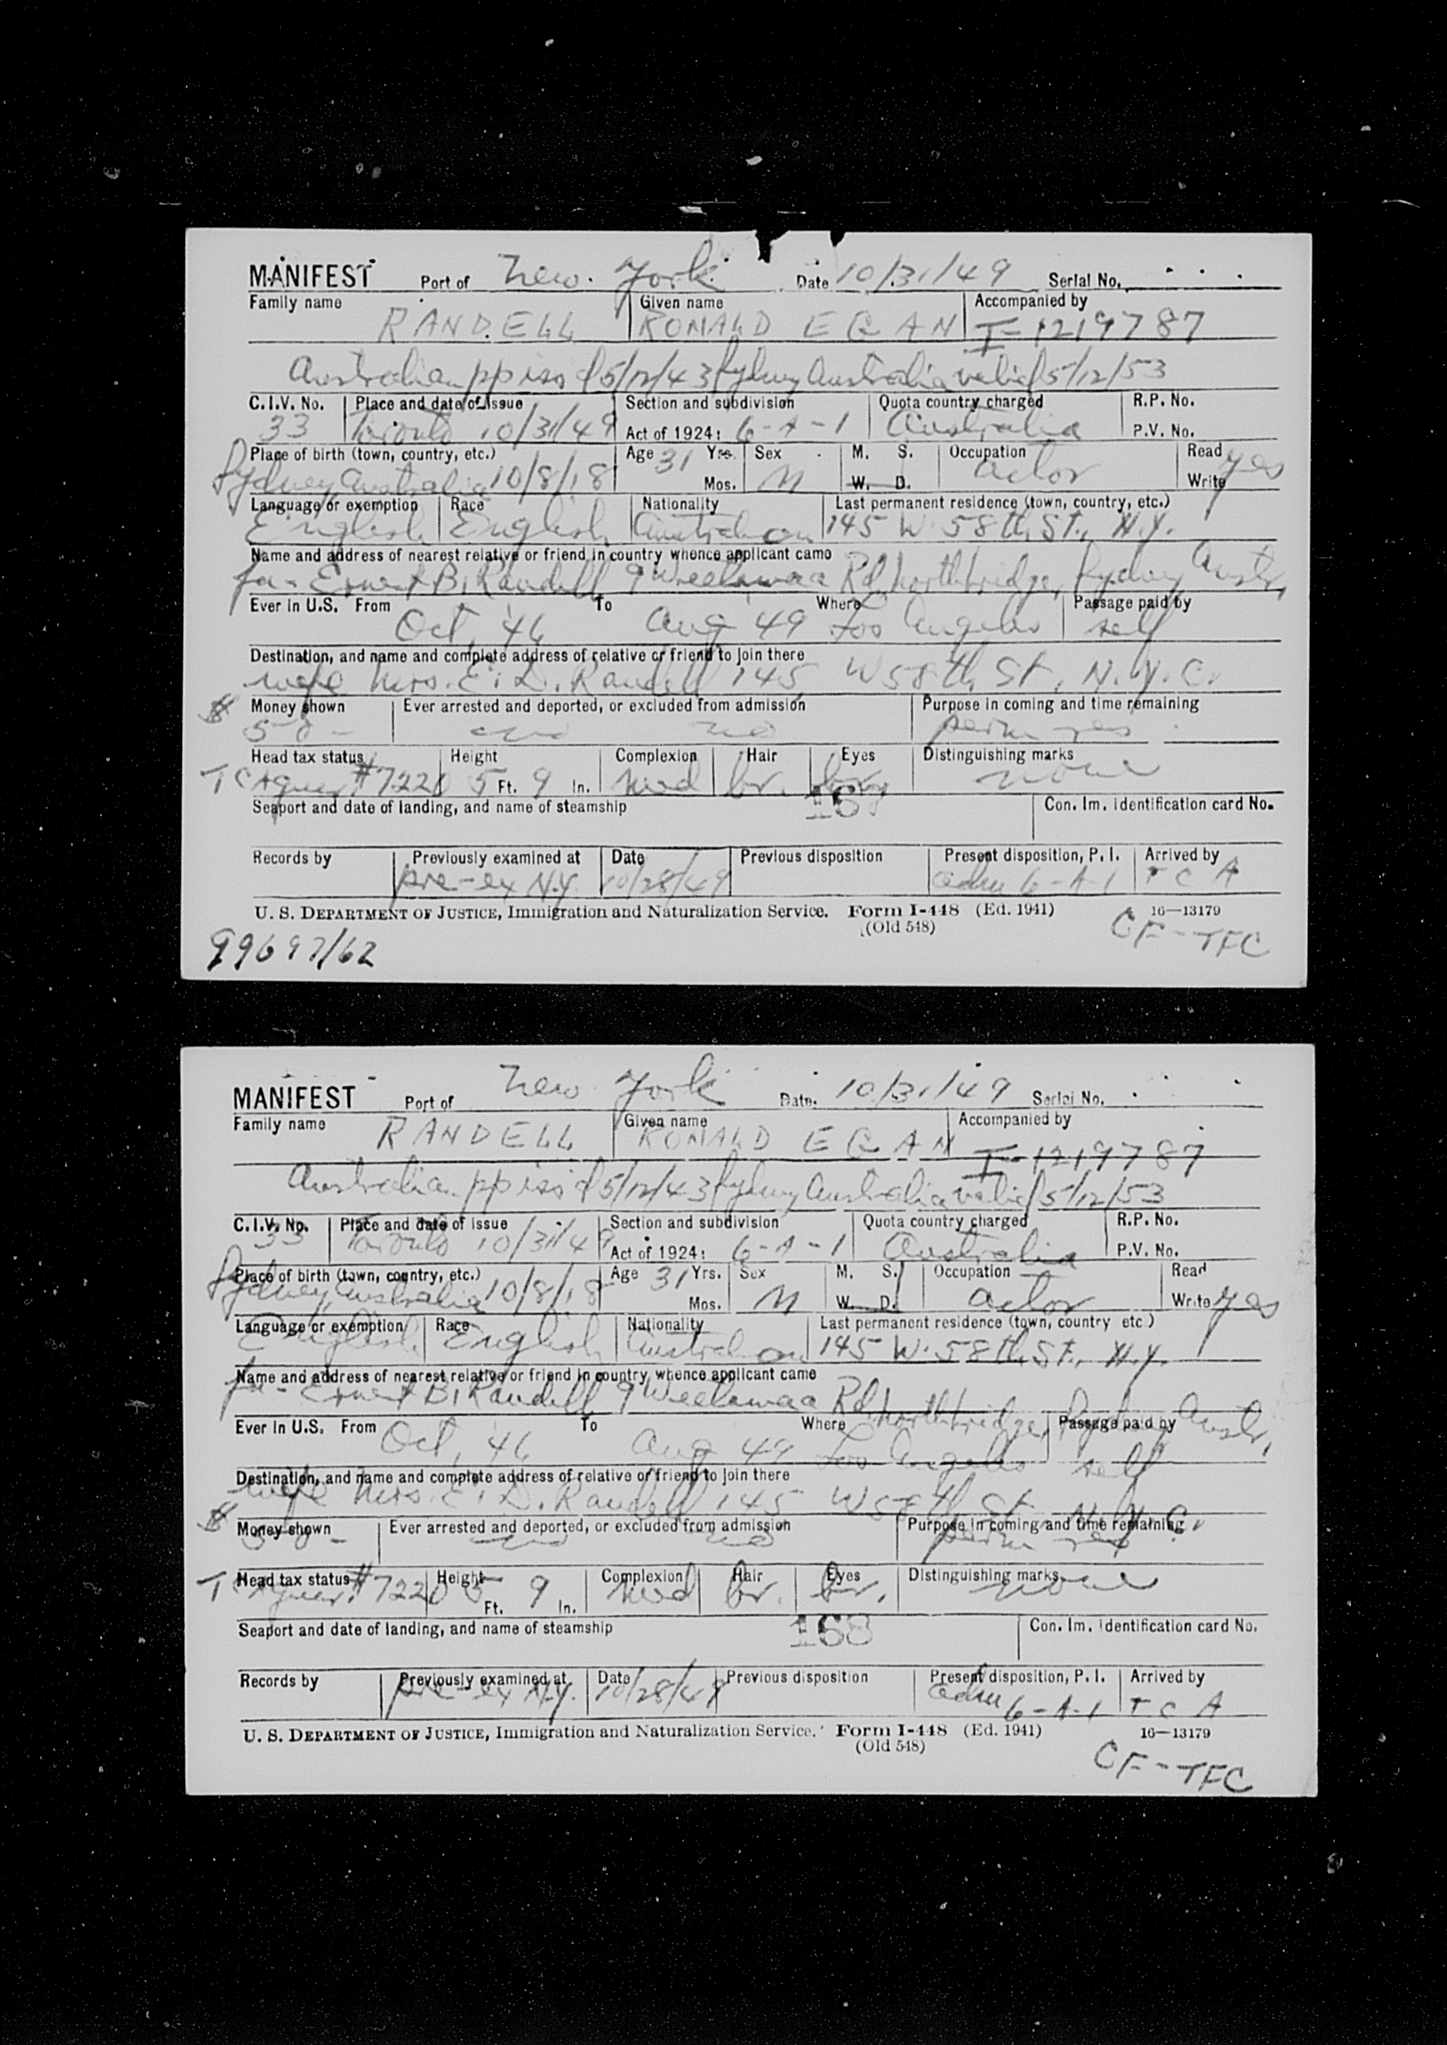 MANIFEST Port of New York Date 10/31/49 Serial No.
Family name Given name Accompanied by
RANDELL RONALD EGAN I-1219787
Australian pp iss d 5/12/43 Sydney Australia valid 5/12/53
C.I.V. No. Place and date of issue Section and subdivision Quota country charged R.P. No.
33 Toronto 10/31/49 Act of 1924: 6-A-1 Australia P.V. No.
Place of birth (town, country, etc.) Age 31 Yrs. Sex M. S. Occupation Read yes
Sydney, Australia 10/8/18 Mos. M W. D. actor Write
Language or exemption Race Nationality Last permanent residence (town, country, etc.)
English English Australian 145 W. 58th St., N.Y.
Name and address of nearest relative or friend in country whence applicant came
fa - Ernest B. Randell 9 Rd, Northbridge, Sydney Austr,
Ever in U.S. From To Where Passage paid by
Oct, '46 Aug '49 Los Angeles self
Destination, and name and complete address of relative or friend to join there
wife Mrs. E. D. Randell 145 W 58th St, N.Y.C.
$ Money shown Ever arrested and deported, or excluded from admission Purpose in coming and time remaining
50 - no no perm res
Head tax status Height Complexion Hair Eyes Distinguishing marks
TCA #7220 5 Ft. 9 In. med br. br. none
Seaport and date of landing, and name of steamship Con. Im. identification card No.
Records by Previously examined at Date Previous disposition Present disposition, P. I. Arrived by
pre-ex N.Y. 10/28/49 adm 6-A-1 T C A
U. S. DEPARTMENT OF JUSTICE, Immigration and Naturalization Service. Form I-448 (Ed. 1941) 16—13179
(Old 548) CF-TFC
99697/62
MANIFEST Port of New York Date 10/31/49 Serial No.
Family name Given name Accompanied by
RANDELL RONALD EGAN I-1219787
Australian pp iss d 5/12/43 Sydney Australia valid 5/12/53
C.I.V. No. Place and date of issue Section and subdivision Quota country charged R.P. No.
33 Toronto 10/31/49 Act of 1924: 6-A-1 Australia P.V. No.
Place of birth (town, country, etc.) Age 31 Yrs. Sex M. S. Occupation Read
Sydney, Australia 10/8/18 Mos. M W. D. actor Write yes
Language or exemption Race Nationality Last permanent residence (town, country etc.)
English English Australian 145 W. 58th St., N.Y.
Name and address of nearest relative or friend in country whence applicant came
fa - Ernest B. Randell 9 Rd, Northbridge, Sydney Austr,
Ever in U.S. From To Where Passage paid by
Oct, '46 Aug 49 Los Angeles self
Destination, and name and complete address of relative or friend to join there
wife Mrs. E. D. Randell 145 W 58th St N.Y.C.
$ Money shown Ever arrested and deported, or excluded from admission Purpose in coming and time remaining
50 - no no perm res
Head tax status Height Complexion Hair Eyes Distinguishing marks
T #7220 5 Ft. 9 In. med br. br. none
168
Seaport and date of landing, and name of steamship Con. Im. identification card No.
Records by Previously examined at Date Previous disposition Present disposition, P. I. Arrived by
pre-ex N.Y. 10/28/49 adm 6-A-1 T C A
U. S. DEPARTMENT OF JUSTICE, Immigration and Naturalization Service. Form I-448 (Ed. 1941) 16—13179
(Old 548)
CF-TFC